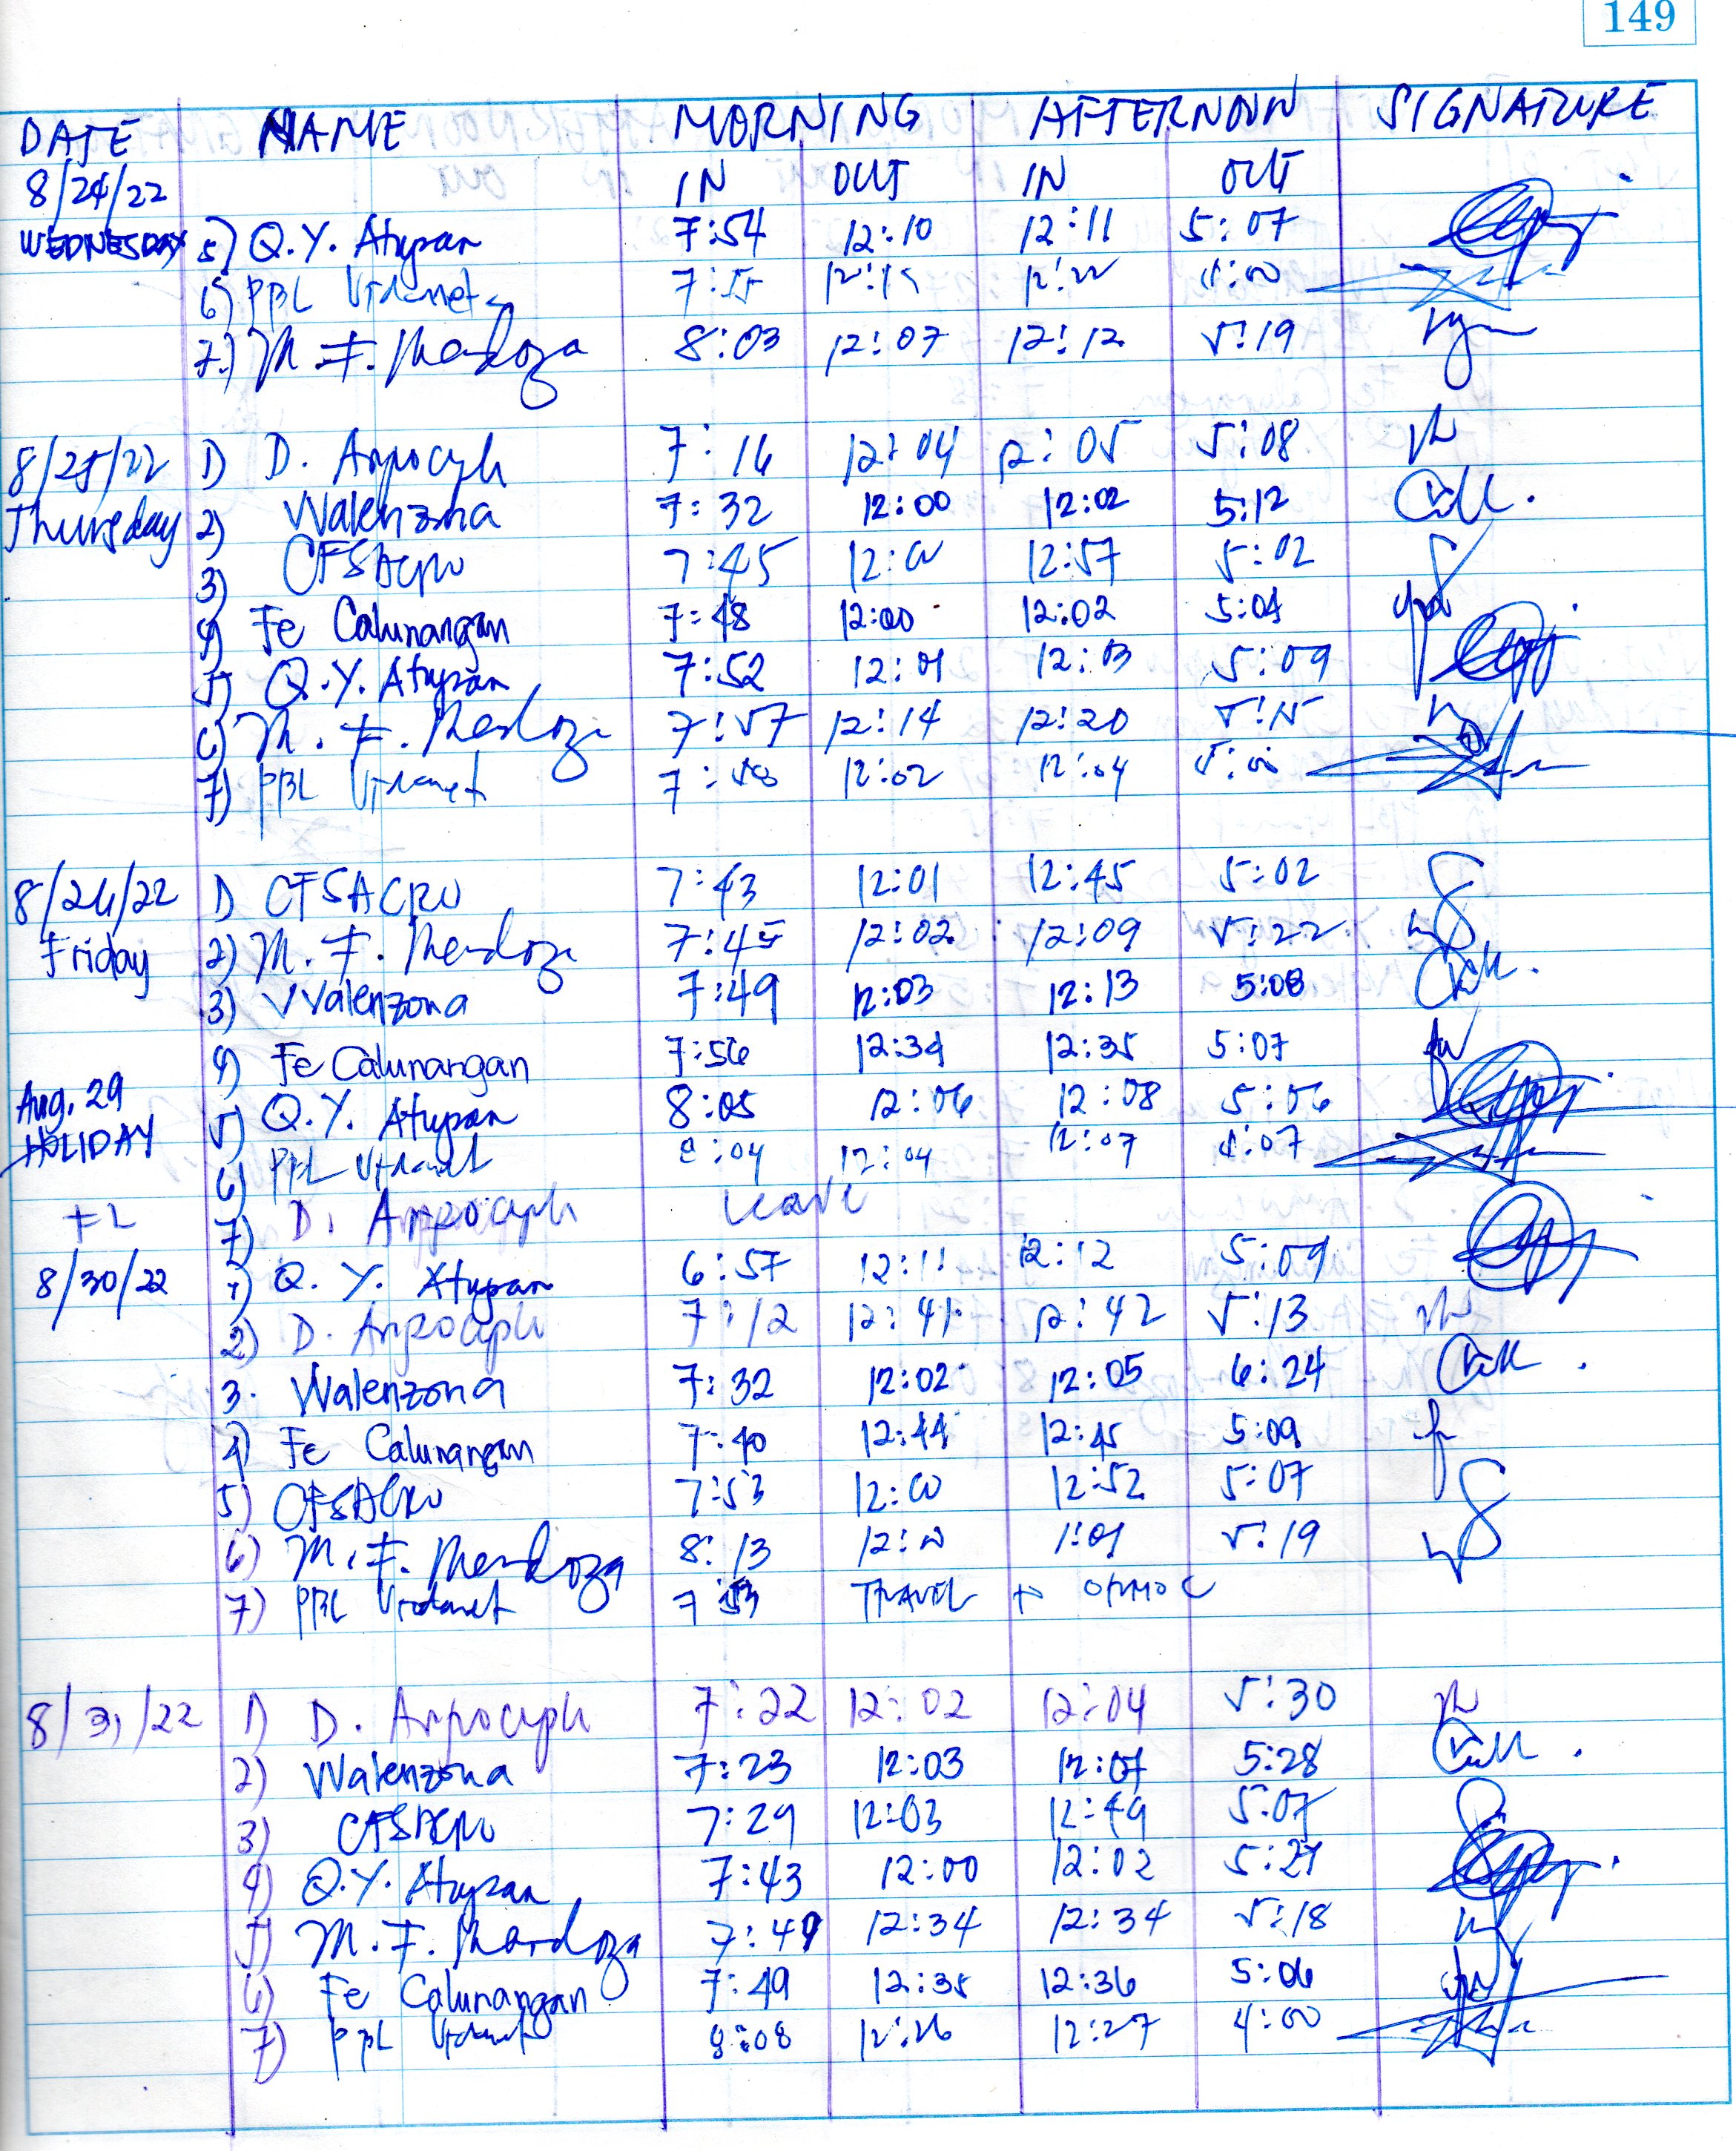 149
DATE NAME MORNING AFTERNOON SIGNATURE
8/24/22 IN OUT IN OUT
WEDNESDAY 5) Q.Y. Atupan 7:54 12:10 12:11 5:07
6) PBL 7:55 12:15 12:22 4:00
7.) M.F. Mendoza 8:03 12:07 12:12 5:19
8/25/22 1) D. 7:16 12:04 12:05 5:08
Thursday 2) Walenzona 7:32 12:00 12:02 5:12
3) CFSACRO 7:45 12:00 12:57 5:02
4) Fe Calunangan 7:48 12:00 12:02 5:04
5) Q.Y. Atupan 7:52 12:01 12:03 5:09
6) M.F. Mendoza 7:57 12:14 12:20 5:15
7) PBL 12:02 12:04 5:00
8/26/22 1) CFSACRO 7:43 12:01 12:45 5:02
Friday 2) M.F. Mendoza 7:45 12:02 12:09 5:22
3) Walenzona 7:49 12:03 12:13 5:08
4) Fe Calunangan 7:56 12:34 12:35 5:07
Aug. 29 5) Q.Y. Atupan 8:05 12:06 12:08 5:06
HOLIDAY 6) PBL 8:04 12:04 12:07 4:07
FL 7) D. leave
8/30/22 1) Q.Y. Atupan 6:57 12:11 12:12 5:09
2) D. 7:12 12:41 12:42 5:13
3. Walenzona 7:32 12:02 12:05 6:24
4) Fe Calunangan 7:40 12:44 12:45 5:09
5) CFSACRO 7:53 12:00 12:52 5:07
6) M.F. Mendoza 8:13 12:00 1:01 5:19
7) PBL 7:53 TRAVEL to ORMOC
8/31/22 1) D. 7:22 12:02 12:04 5:30
2) Walenzona 7:23 12:03 12:07 5:28
3) CFSACRO 7:29 12:03 12:49 5:07
4) Q.Y. Atupan 7:43 12:00 12:02 5:27
5) M.F. Mendoza 7:49 12:34 12:34 5:18
6) Fe Calunangan 7:49 12:35 12:36 5:06
7) PBL 8:08 12:26 12:27 4:00